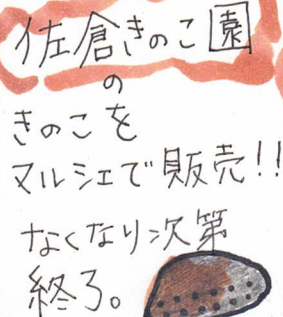 佐倉きのこ園
の
きのこを
マルシェで販売!!
なくなり次第
終了。